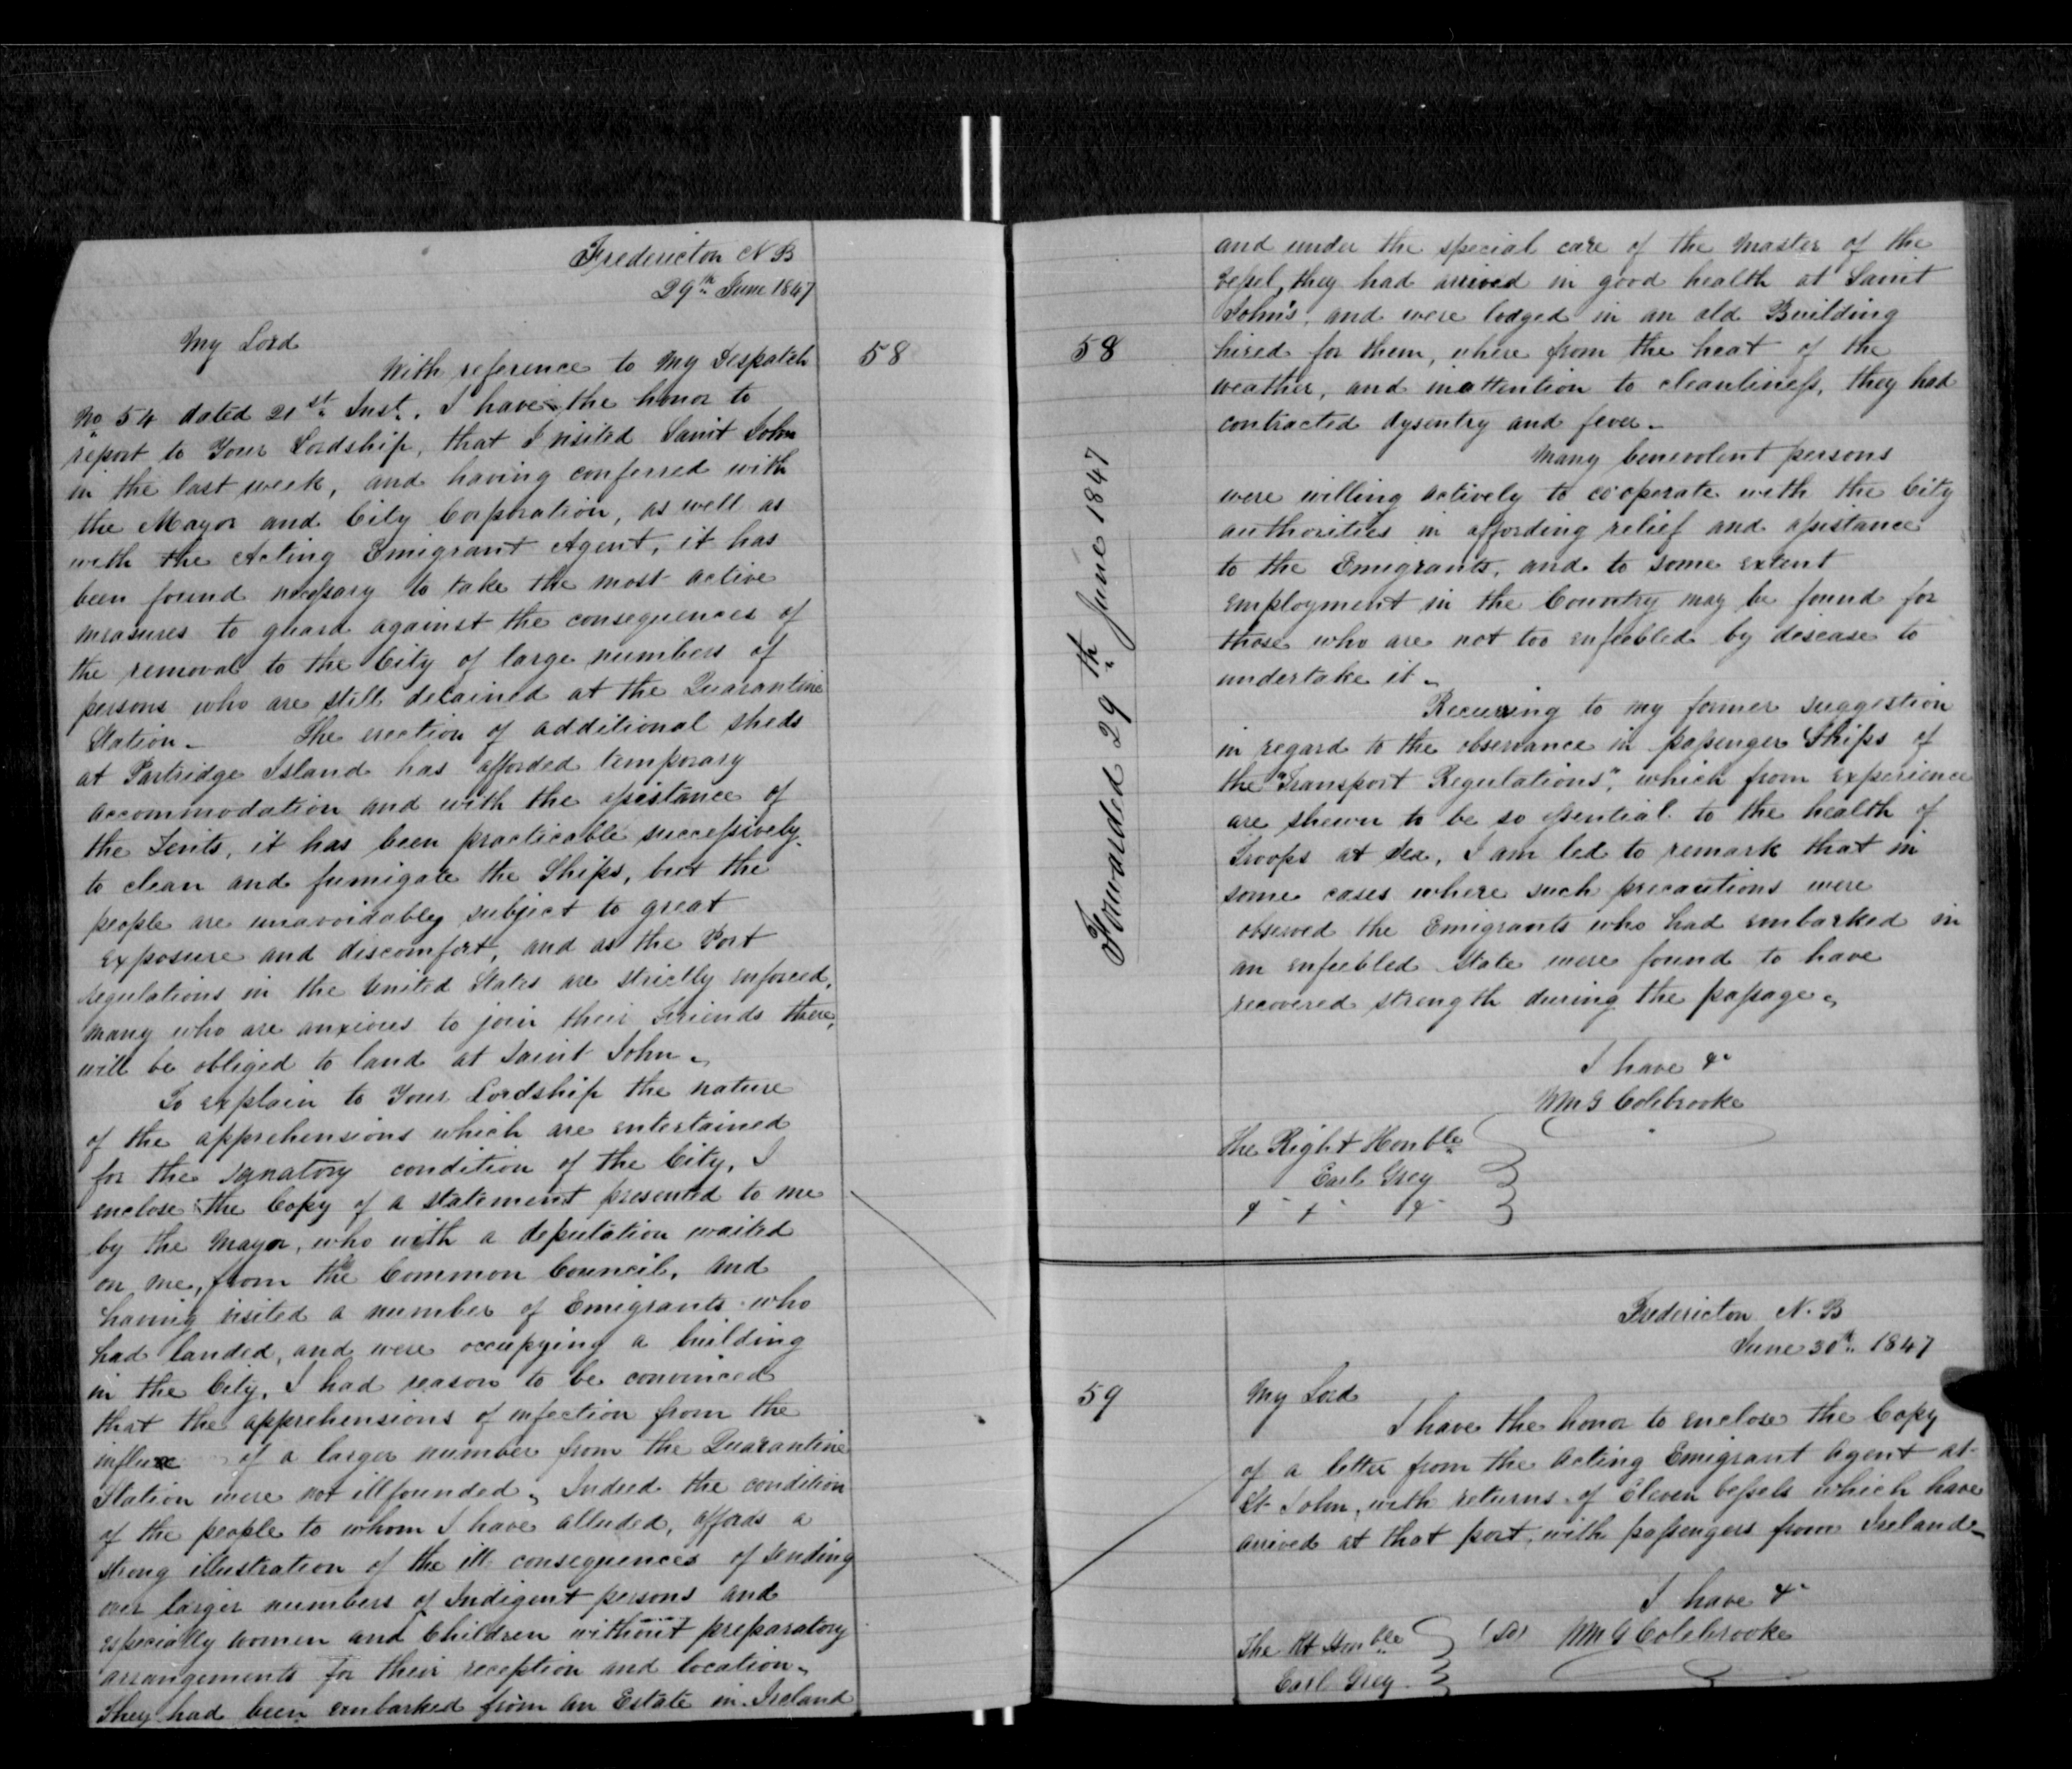 Fredericton N B
29th June 1847
My Lord
With reference to my Despatch
58
No 54 dated 21st Inst. I have the honor to
report to Your Lordship, that I visited Saint John
in the last week, and having conferred with
the Mayor and City Corporation, as well as
with the Acting Emigrant Agent, it has
been found necessary to take the most active
measures to guard against the consequences of
the removal to the City of large numbers of
persons who are still detained at the Quarantine
Station. The erection of additional sheds
at Partridge Island has afforded temporary
accommodation and with the assistance of
the Tents, it has been practicable successively
to clean and fumigate the Ships, but the
people are unavoidably subject to great
exposure and discomfort, and as the Port
regulations in the United States are strictly enforced,
many who are anxious to join their Friends there,
will be obliged to land at Saint John.
To explain to Your Lordship the nature
of the apprehensions which are entertained
for the condition of the City, I
enclose the Copy of a statement presented to me
by the Mayor, who with a deputation waited
on me, from the Common Council, and
having visited a number of Emigrants who
had landed, and were occupying a building
in the City, I had reason to be convinced
that the apprehensions of infection from the
influx of a larger number from the Quarantine
Station were not illfounded. Indeed the condition
of the people to whom I have alluded, affords a
strong illustration of the ill consequences of sending
over larger numbers of Indigent persons and
especially women and Children without preparatory
arrangements for their reception and location.
They had been embarked from an Estate in Ireland
and under the special care of the Master of the
Vessel, they had arrived in good health at Saint
John's, and were lodged in an old Building
58
hired for them, where from the heat of the
weather, and inattention to cleanliness, they had
contracted dysentry and fever.
Forwarded 29th June 1847
Many benevolent persons
were willing actively to cooperate with the City
authorities in affording relief and assistance
to the Emigrants, and to some extent
employment in the Country may be found for
those who are not too enfeebled by desease to
undertake it.
Recurring to my former suggestion
in regard to the observance in passenger Ships of
the "Transport Regulations", which from experience
are shewn to be so essential to the health of
Troops at Sea, I am led to remark that in
some cases where such precautions were
observed the Emigrants who had embarked in
an enfeebled state were found to have
recovered strength during the passage.
I have &c
Wm G Colebrooke
The Right Honble
Earl Grey
& & &
Fredericton N. B
June 30th 1847
59
My Lord
I have the honor to enclose the Copy
of a letter from the Acting Emigrant Agent at
St John, with returns of Eleven vessels which have
arrived at that port with passengers from Ireland.
I have &c
The Rt Honble (Sd) Wm G Colebrooke
Earl Grey